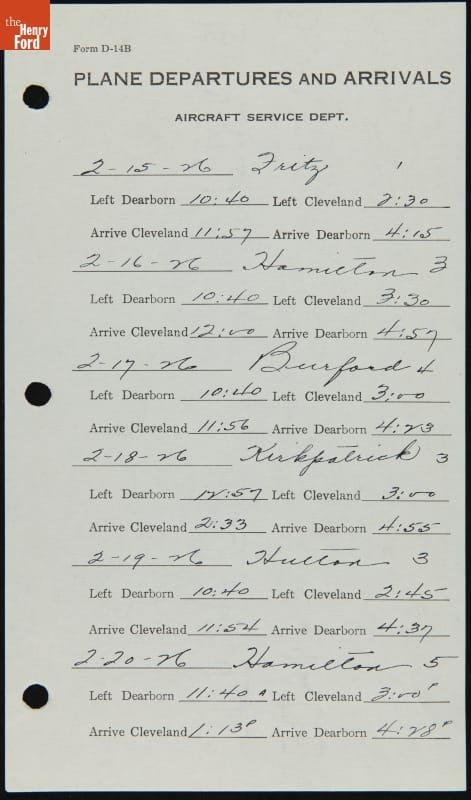 the
Henry
Ford
Form D-14B
PLANE DEPARTURES AND ARRIVALS
AIRCRAFT SERVICE DEPT.
2-15-26 Fritz 1
Left Dearborn 10:40 Left Cleveland 2:30
Arrive Cleveland 11:57 Arrive Dearborn 4:15
2-16-26 Hamilton 3
Left Dearborn 10:40 Left Cleveland 3:30
Arrive Cleveland 12:00 Arrive Dearborn 4:57
2-17-26 Burford 4
Left Dearborn 10:40 Left Cleveland 3:00
Arrive Cleveland 11:56 Arrive Dearborn 4:23
2-18-26 Kirkpatrick 3
Left Dearborn 12:57 Left Cleveland 3:00
Arrive Cleveland 2:33 Arrive Dearborn 4:55
2-19-26 Hutton 3
Left Dearborn 10:40 Left Cleveland 2:45
Arrive Cleveland 11:54 Arrive Dearborn 4:37
2-20-26 Hamilton 5
Left Dearborn 11:40 A Left Cleveland 3:00 P
Arrive Cleveland 1:13 P Arrive Dearborn 4:28 P